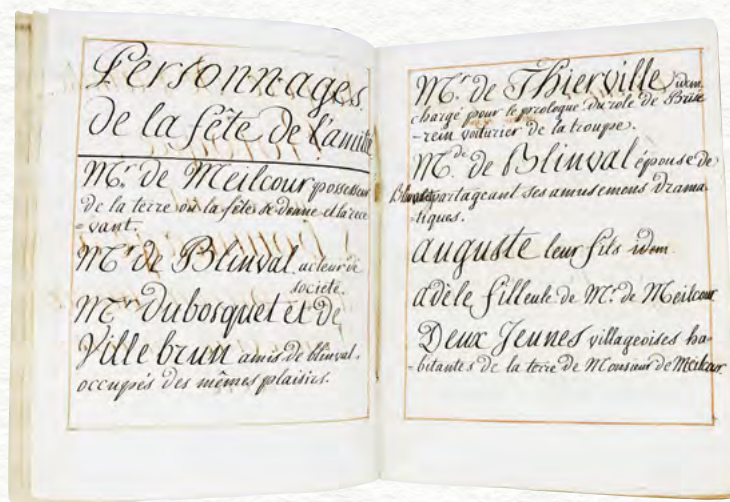 Personnages
de la fête de l'amitié
Mr. de Meilcour possesseur
de la terre où la fête se donne et la rece
=vant.
Mr. de Blinval acteur de
societé.
Mrs Dubosquet et de
Villebrun amis de blinval.
occupés des mêmes plaisirs.
Mr. de Thierville idem
chargé pour le prologue du rôle de Brise
=rein voiturier de la troupe.
Mde. de Blinval épouse de
Blinval partageant ses amusemens drama
=tiques.
auguste leur fils idem
adèle filleule de Mr. de Meilcour
Deux Jeunes villageoises ha-
=bitantes de la terre de Monsieur de Meilcour